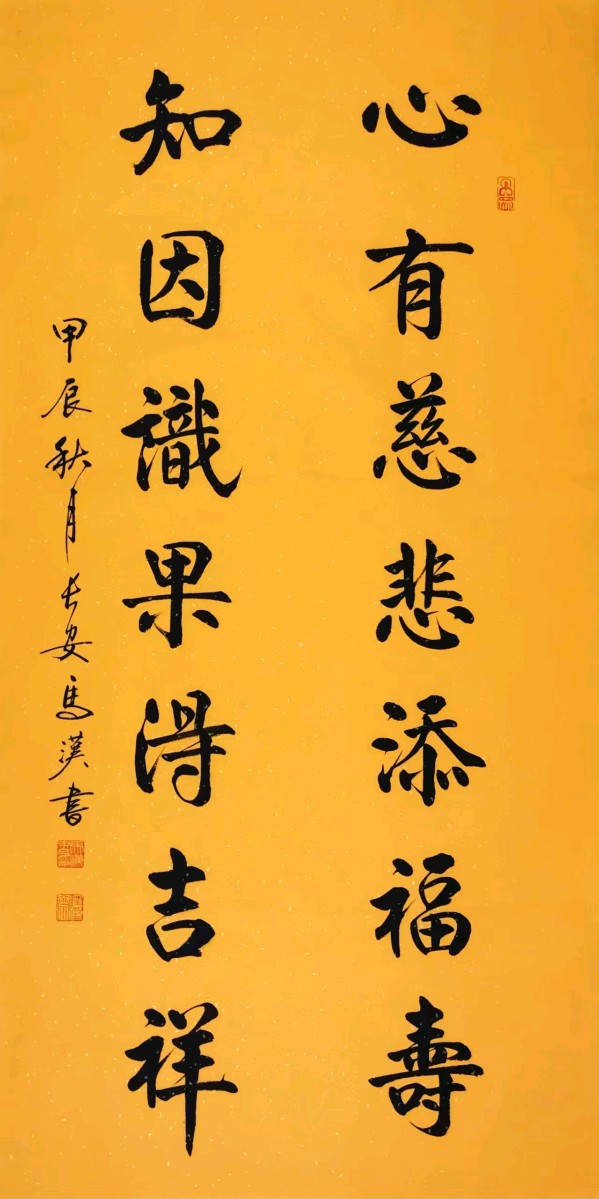 心有慈悲添福壽
知因識果得吉祥
甲辰秋月長安馬漢書